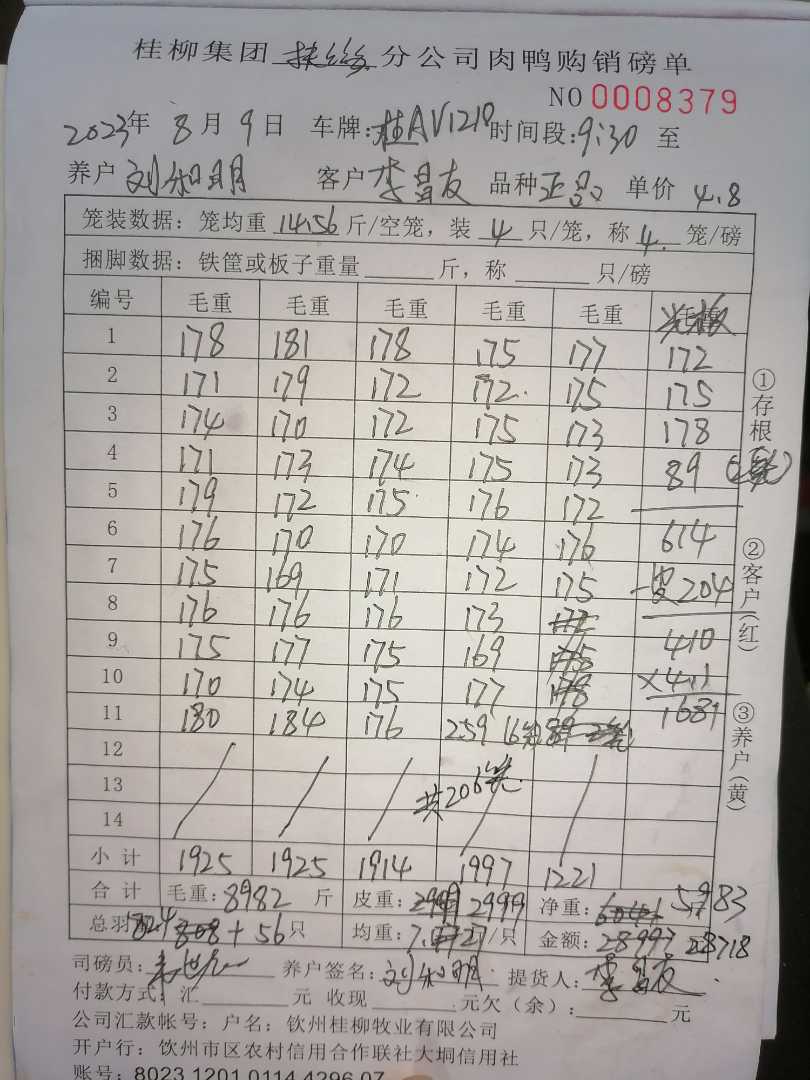 桂柳集团 分公司肉鸭购销磅单
NO 0008379
2023年 8月 9日 车牌:桂AV1210 时间段:9:30 至
养户 刘和明 客户 李昌友 品种 正品 单价 4.8
笼装数据：笼均重 14.56 斤/空笼，装 4 只/笼，称 4. 笼/磅
捆脚数据：铁筐或板子重量 斤，称 只/磅
编号 毛重 毛重 毛重 毛重 毛重
1 178 181 178 175 177 172
2 171 179 172 172. 175 175
3 174 170 172 175 173 178
4 171 173 174 175 173 89
5 179 172 175 176 172
6 176 170 170 174 176 614
7 175 169 171 172 175 -皮204
8 176 176 176 173
9 175 177 175 169 410
10 170 174 175 177 ×4.1
11 180 184 176 259 1681
12
13 共206笼
14
小计 1925 1925 1914 1997 1221
合计 毛重:8982 斤 皮重: 2999 净重: 5983
总羽 824 + 56只 均重:7. /只 金额: 28997 28718
司磅员: 养户签名: 刘和明 提货人: 李昌友
付款方式：汇 元 收现 元欠（余）: 元
公司汇款帐号：户名：钦州桂柳牧业有限公司
开户行：钦州市区农村信用合作联社大垌信用社
账号：8023 1201 0114 4296 07
①存根
②客户(红)
③养户(黄)